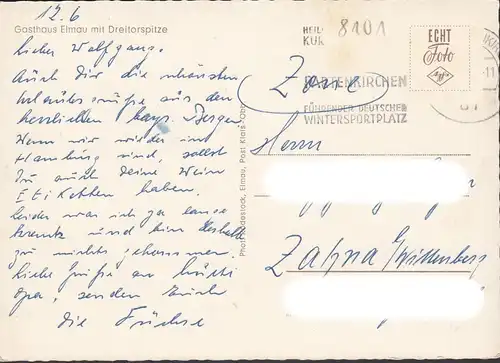 12.6
Gasthaus Elmau mit Dreitorspitze
Lieber Wolfgang.
Auch Dir die schönsten
Urlaubsgrüße aus den
herrlichen bayr. Bergen
Wenn wir wieder in
Hamburg sind, sollst
Du auch Deine Wein
Etiketten haben.
Leider war ich ja lange
krank und bin deshalb
zu nichts gekommen.
Liebe Grüße an
Opa, senden Euch
Die Füchse
Elmau, Post Klais/Obb.
8101
HEIL
KUR
PARTENKIRCHEN
FÜHRENDER DEUTSCHER
WINTERSPORTPLATZ
ECHT
Foto
Agfa
-11
Herrn
Zahna / Wittenberg